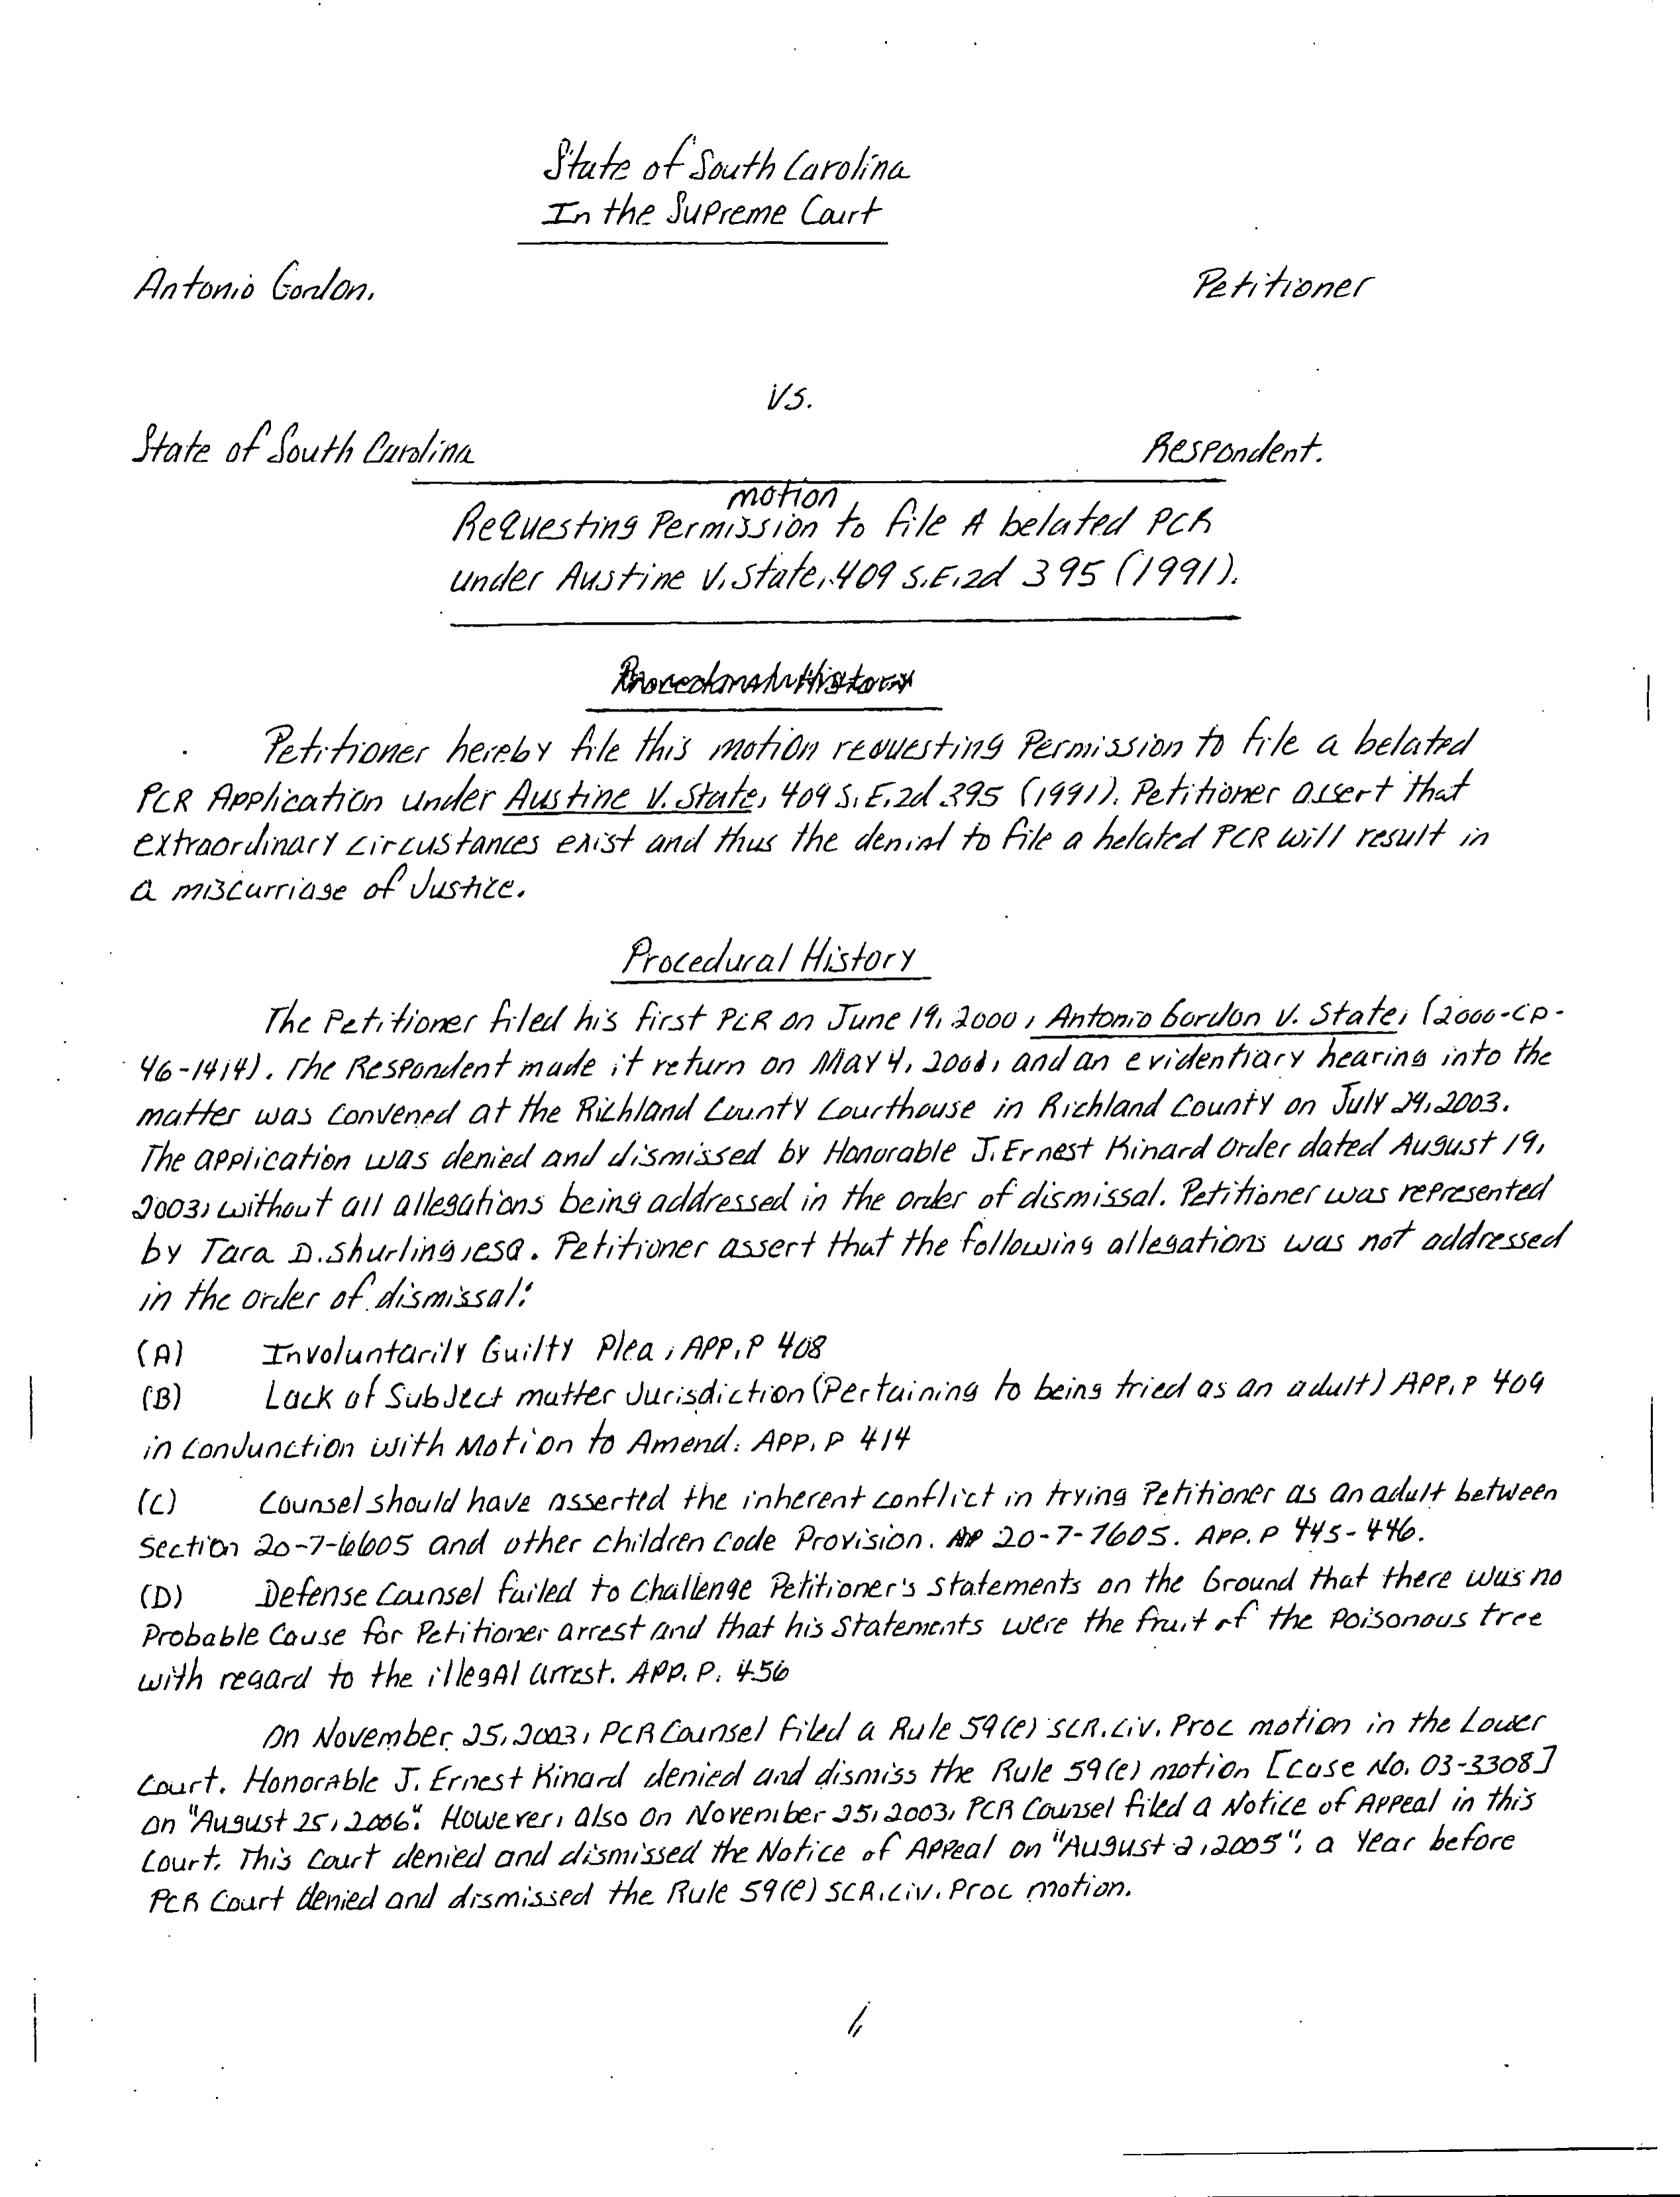 State of South Carolina
In the Supreme Court
Antonio Gordon. Petitioner
VS.
State of South Carolina Respondent.
motion
Requesting Permission to file A belated PCR
under Austine V. State, 409 S.E.2d 395 (1991).
Procedural History
Petitioner hereby file this motion requesting Permission to file a belated
PCR Application under Austine V. State, 409 S.E.2d 395 (1991). Petitioner assert that
extraordinary circustances exist and thus the denial to file a belated PCR will result in
a miscarriage of Justice.
Procedural History
The Petitioner filed his first PCR on June 19, 2000, Antonio Gordon V. State, (2000-CP-
46-1414). The Respondent made it return on May 4, 2001, and an evidentiary hearing into the
matter was convened at the Richland County Courthouse in Richland County on July 24, 2003.
The application was denied and dismissed by Honorable J. Ernest Kinard Order dated August 19,
2003, without all allegations being addressed in the order of dismissal. Petitioner was represented
by Tara D. Shurling, esq. Petitioner assert that the following allegations was not addressed
in the order of dismissal:
(A) Involuntarily Guilty Plea, APP. P 408
(B) Lack of Subject matter Jurisdiction (Pertaining to being tried as an adult) APP. P 409
in conjunction with Motion to Amend. APP. P 414
(C) Counsel should have asserted the inherent conflict in trying Petitioner as an adult between
Section 20-7-6605 and other children Code Provision. 20-7-7605. APP. P 445-446.
(D) Defense Counsel failed to Challenge Petitioner's Statements on the Ground that there was no
Probable Cause for Petitioner arrest and that his Statements were the fruit of the Poisonous tree
with regard to the illegal arrest. APP. P. 456
On November 25, 2003, PCR Counsel filed a Rule 59(e) SCR. Civ. Proc motion in the Lower
Court. Honorable J. Ernest Kinard denied and dismiss the Rule 59(e) motion [case No. 03-3308]
on "August 25, 2006". However, also on November 25, 2003, PCR Counsel filed a Notice of Appeal in this
Court. This Court denied and dismissed the Notice of Appeal on "August 2, 2005", a Year before
PCR Court denied and dismissed the Rule 59(e) SCR. Civ. Proc motion.
1,